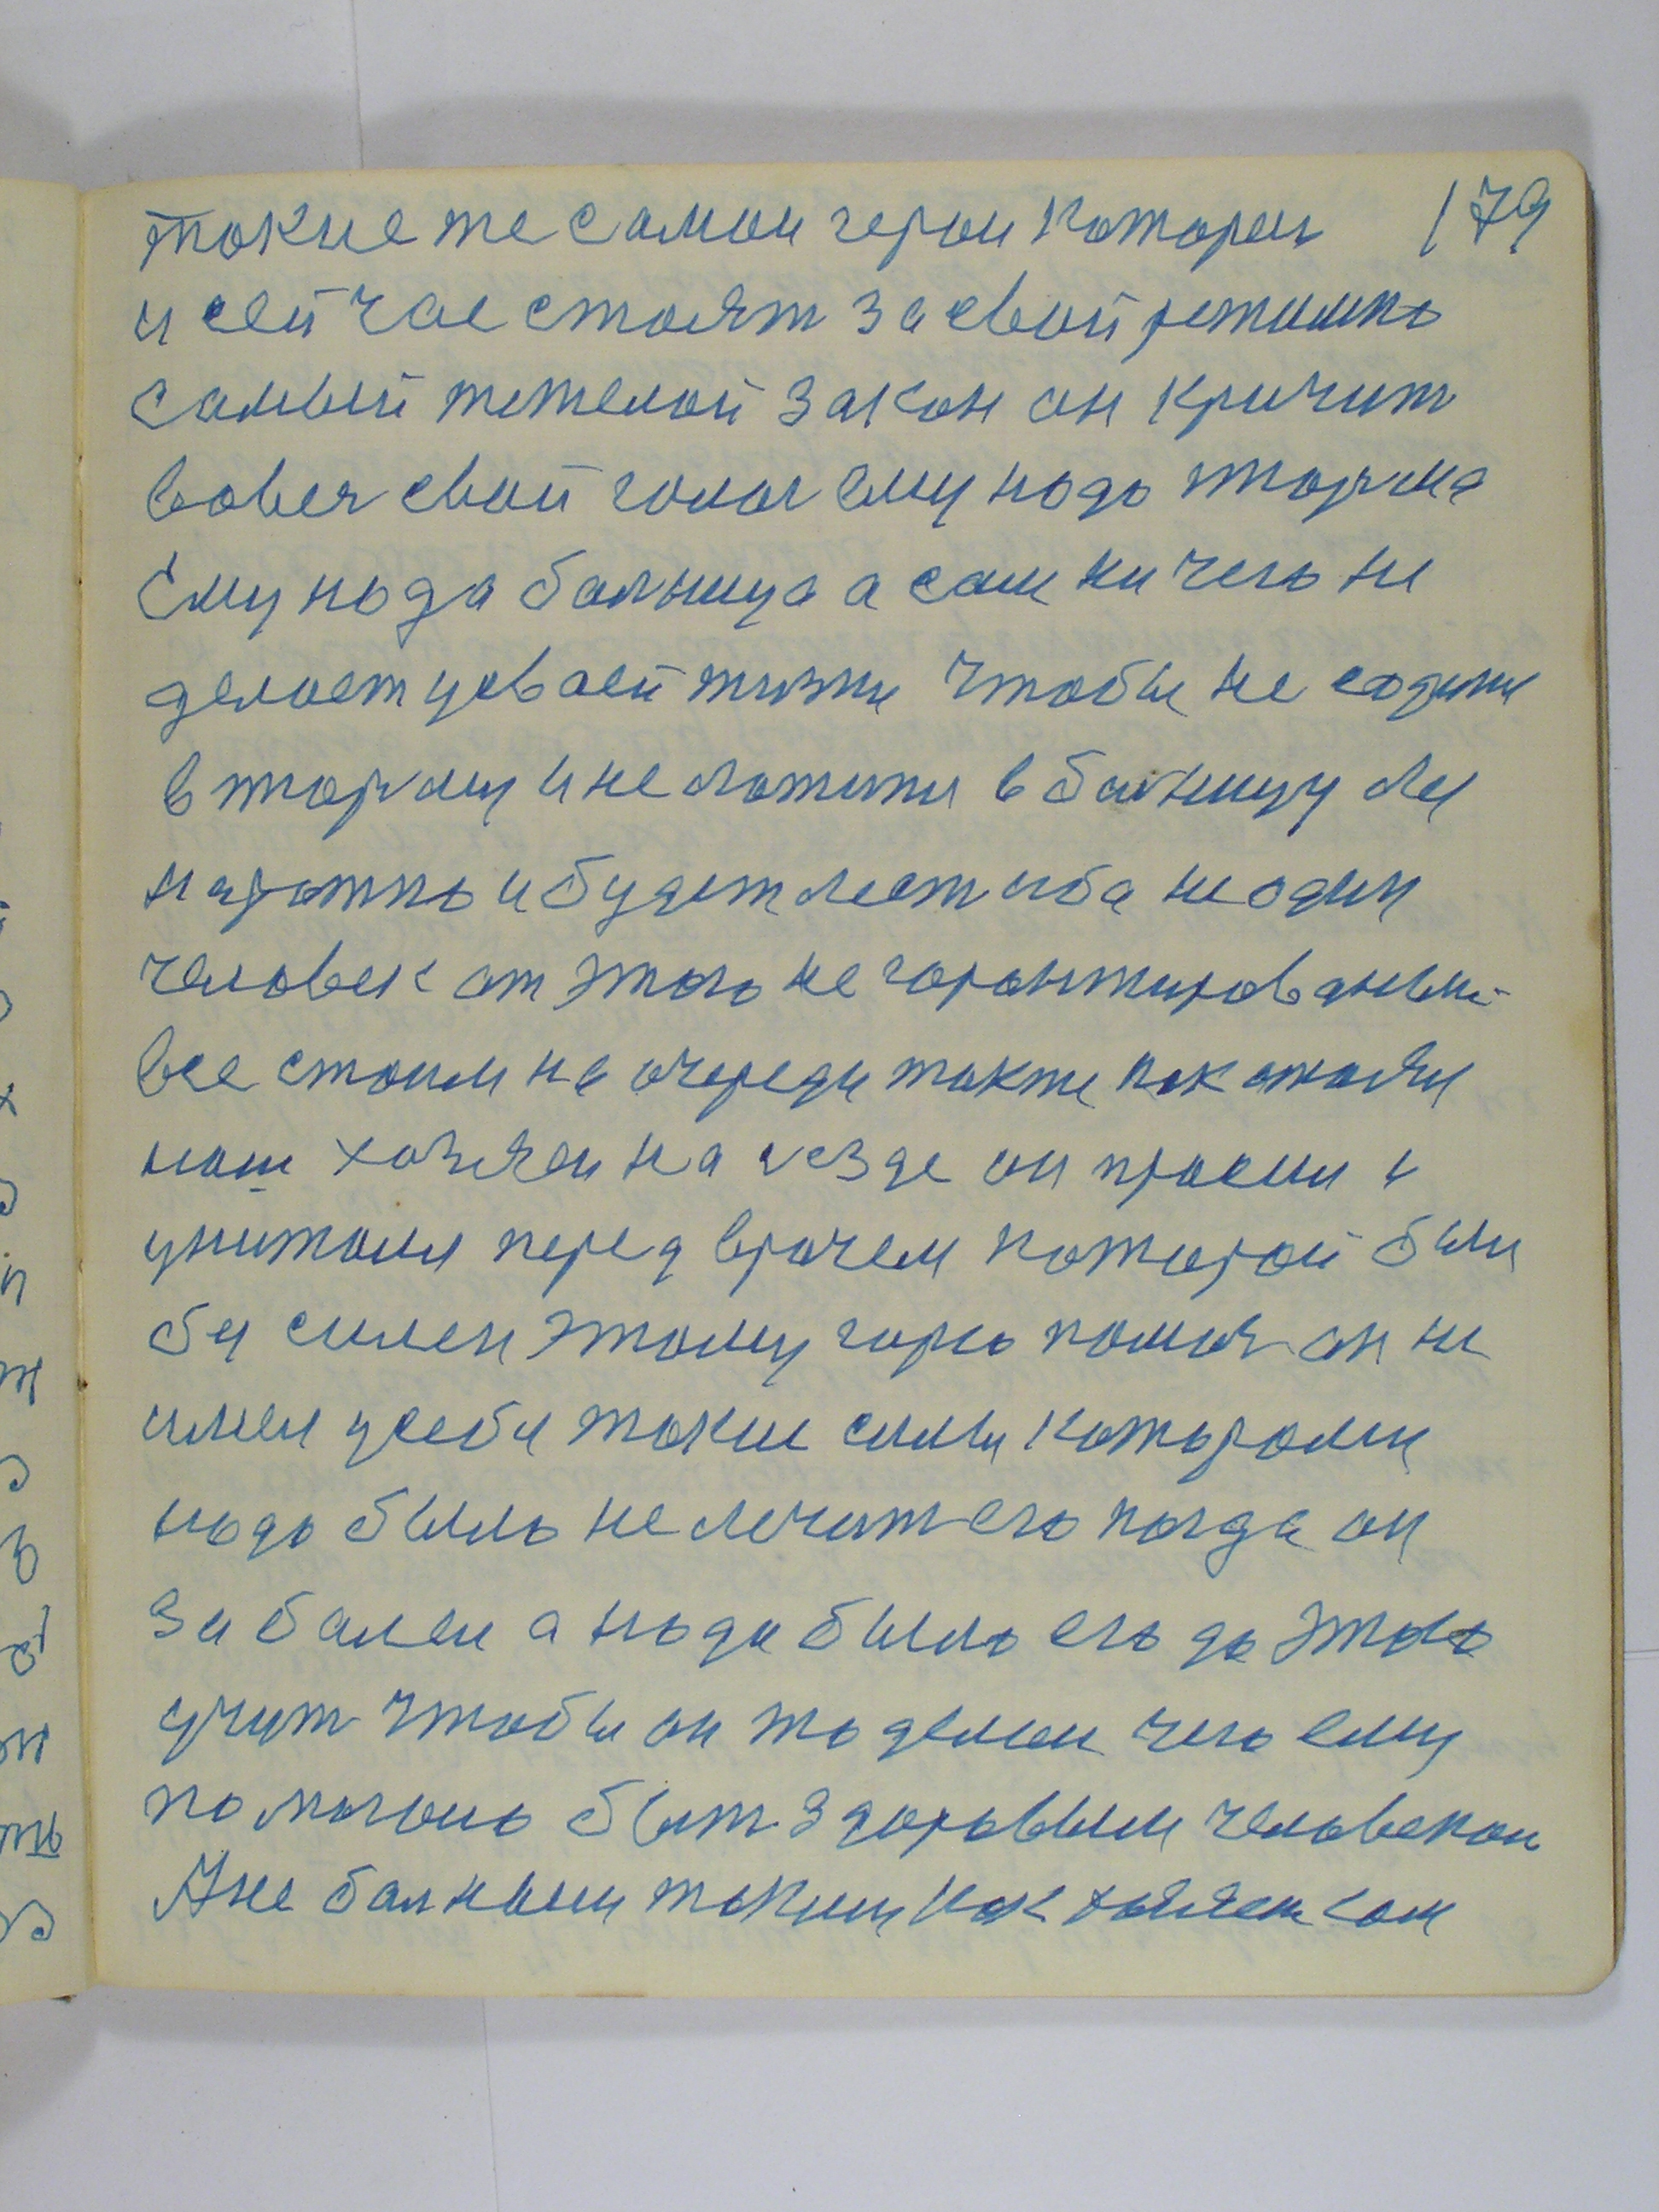 такие же самаи гераи которыи 179
и сейчас стоят за свой режимпо
самый тяжелай закон он кричит
вовесь свой голос ему надо тюрма
Ему нада балница а сам ничего не
делает усваей жизни чтобы не садили
в тюрму и не ложили в балницу
напротпо и будет лест ибо неодин
человек от этого не горонтированый
все стоим на очереди также как стоял
наш хозяен на сезде он просил и
унижался перед врачем которой был
бы силен этому горю помоч он не
имел усебя такие силы котораму
надо было не лечит его когда он
забалел а нада было его до этого
учит чтобы он то делал чего ему
помогало быт здоровым человеком
А не балным таким как хозяен сам